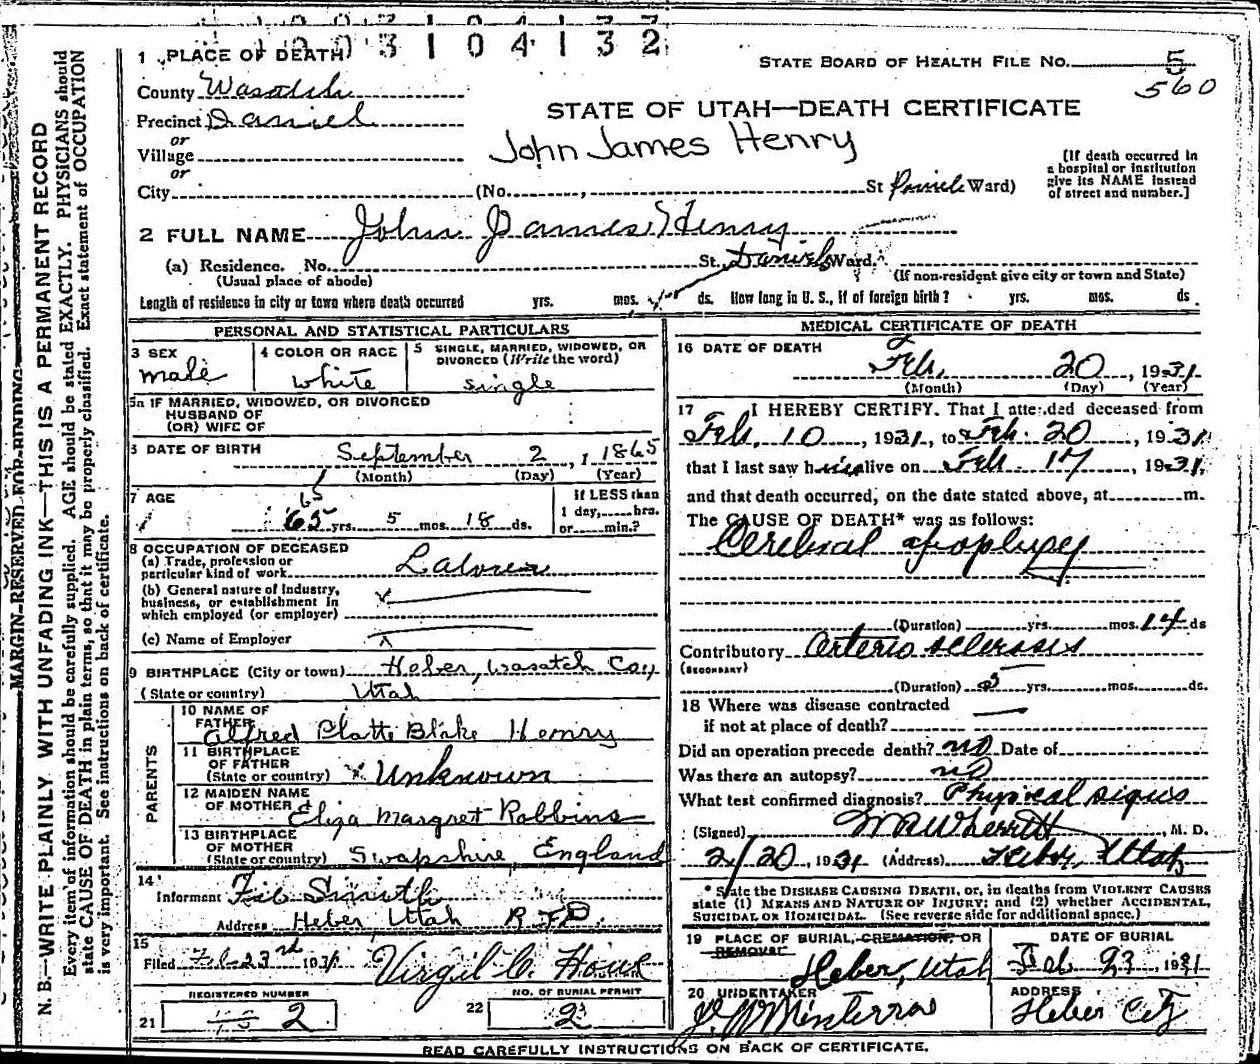 1003104132
1 PLACE OF DEATH
STATE BOARD OF HEALTH FILE NO. 5
560
County Wasatch
STATE OF UTAH—DEATH CERTIFICATE
Precinct Daniel
or
Village
John James Henry
[If death occurred in
a hospital or institution
give its NAME instead
of street and number.]
or
City (No. , St Ward)
2 FULL NAME John James Henry
(a) Residence. No. St. Daniels Ward.
(Usual place of abode)
(If non-resident give city or town and State)
Length of residence in city or town where death occurred yrs. mos. ds. How long in U. S., if of foreign birth? yrs. mos. ds
PERSONAL AND STATISTICAL PARTICULARS
3 SEX
male
4 COLOR OR RACE
white
5 SINGLE, MARRIED, WIDOWED, OR
DIVORCED (Write the word)
single
5a IF MARRIED, WIDOWED, OR DIVORCED
HUSBAND OF
(OR) WIFE OF
6 DATE OF BIRTH September 2, 1865
(Month) (Day) (Year)
7 AGE
65
65 yrs. 5 mos. 18 ds.
If LESS than
1 day, hrs.
or min.?
8 OCCUPATION OF DECEASED
(a) Trade, profession or
particular kind of work Laborer
(b) General nature of Industry,
business, or establishment in
which employed (or employer)
(c) Name of Employer
9 BIRTHPLACE (City or town) Heber, Wasatch Co.,
(State or country) Utah
PARENTS
10 NAME OF
FATHER Alfred Platte Blake Henry
11 BIRTHPLACE
OF FATHER
(State or country) x Unknown
12 MAIDEN NAME
OF MOTHER Eliza Margret Robbins
13 BIRTHPLACE
OF MOTHER
(State or country) Swapshire, England
14
Informent Smith
Address Heber Utah R F D.
15
Filed Feb 23rd 1931 Virgil C. House
REGISTERED NUMBER
21 2
NO. OF BURIAL PERMIT
22 2
MEDICAL CERTIFICATE OF DEATH
16 DATE OF DEATH
Feb. 20, 1931
(Month) (Day) (Year)
17 I HEREBY CERTIFY. That I attended deceased from
Feb. 10, 1931, to Feb. 20, 1931
that I last saw him alive on Feb. 17, 1931
and that death occurred, on the date stated above, at m.
The CAUSE OF DEATH* was as follows:
Cerebral apoplexy
(Duration) yrs. mos. 14 ds
Contributory Arterio sclerosis
(SECONDARY)
(Duration) 5 yrs. mos. ds.
18 Where was disease contracted
if not at place of death?
Did an operation precede death? no Date of
Was there an autopsy? no
What test confirmed diagnosis? Physical signs
(Signed) , M. D.
2/20, 1931 (Address) Heber, Utah
* State the DISEASE CAUSING DEATH, or, in deaths from VIOLENT CAUSES
state (1) MEANS AND NATURE OF INJURY; and (2) whether ACCIDENTAL,
SUICIDAL OR HOMICIDAL. (See reverse side for additional space.)
19 PLACE OF BURIAL, CREMATION, OR
REMOVAL
Heber, Utah
DATE OF BURIAL
Feb 23 1931
20 UNDERTAKER
ADDRESS
Heber City
READ CAREFULLY INSTRUCTIONS ON BACK OF CERTIFICATE.
MARGIN-RESERVED FOR BINDING
N. B.—WRITE PLAINLY WITH UNFADING INK—THIS IS A PERMANENT RECORD
Every item of information should be carefully supplied. AGE should be stated EXACTLY. PHYSICIANS should
state CAUSE OF DEATH in plain terms, so that it may be properly classified. Exact statement of OCCUPATION
is very important. See instructions on back of certificate.